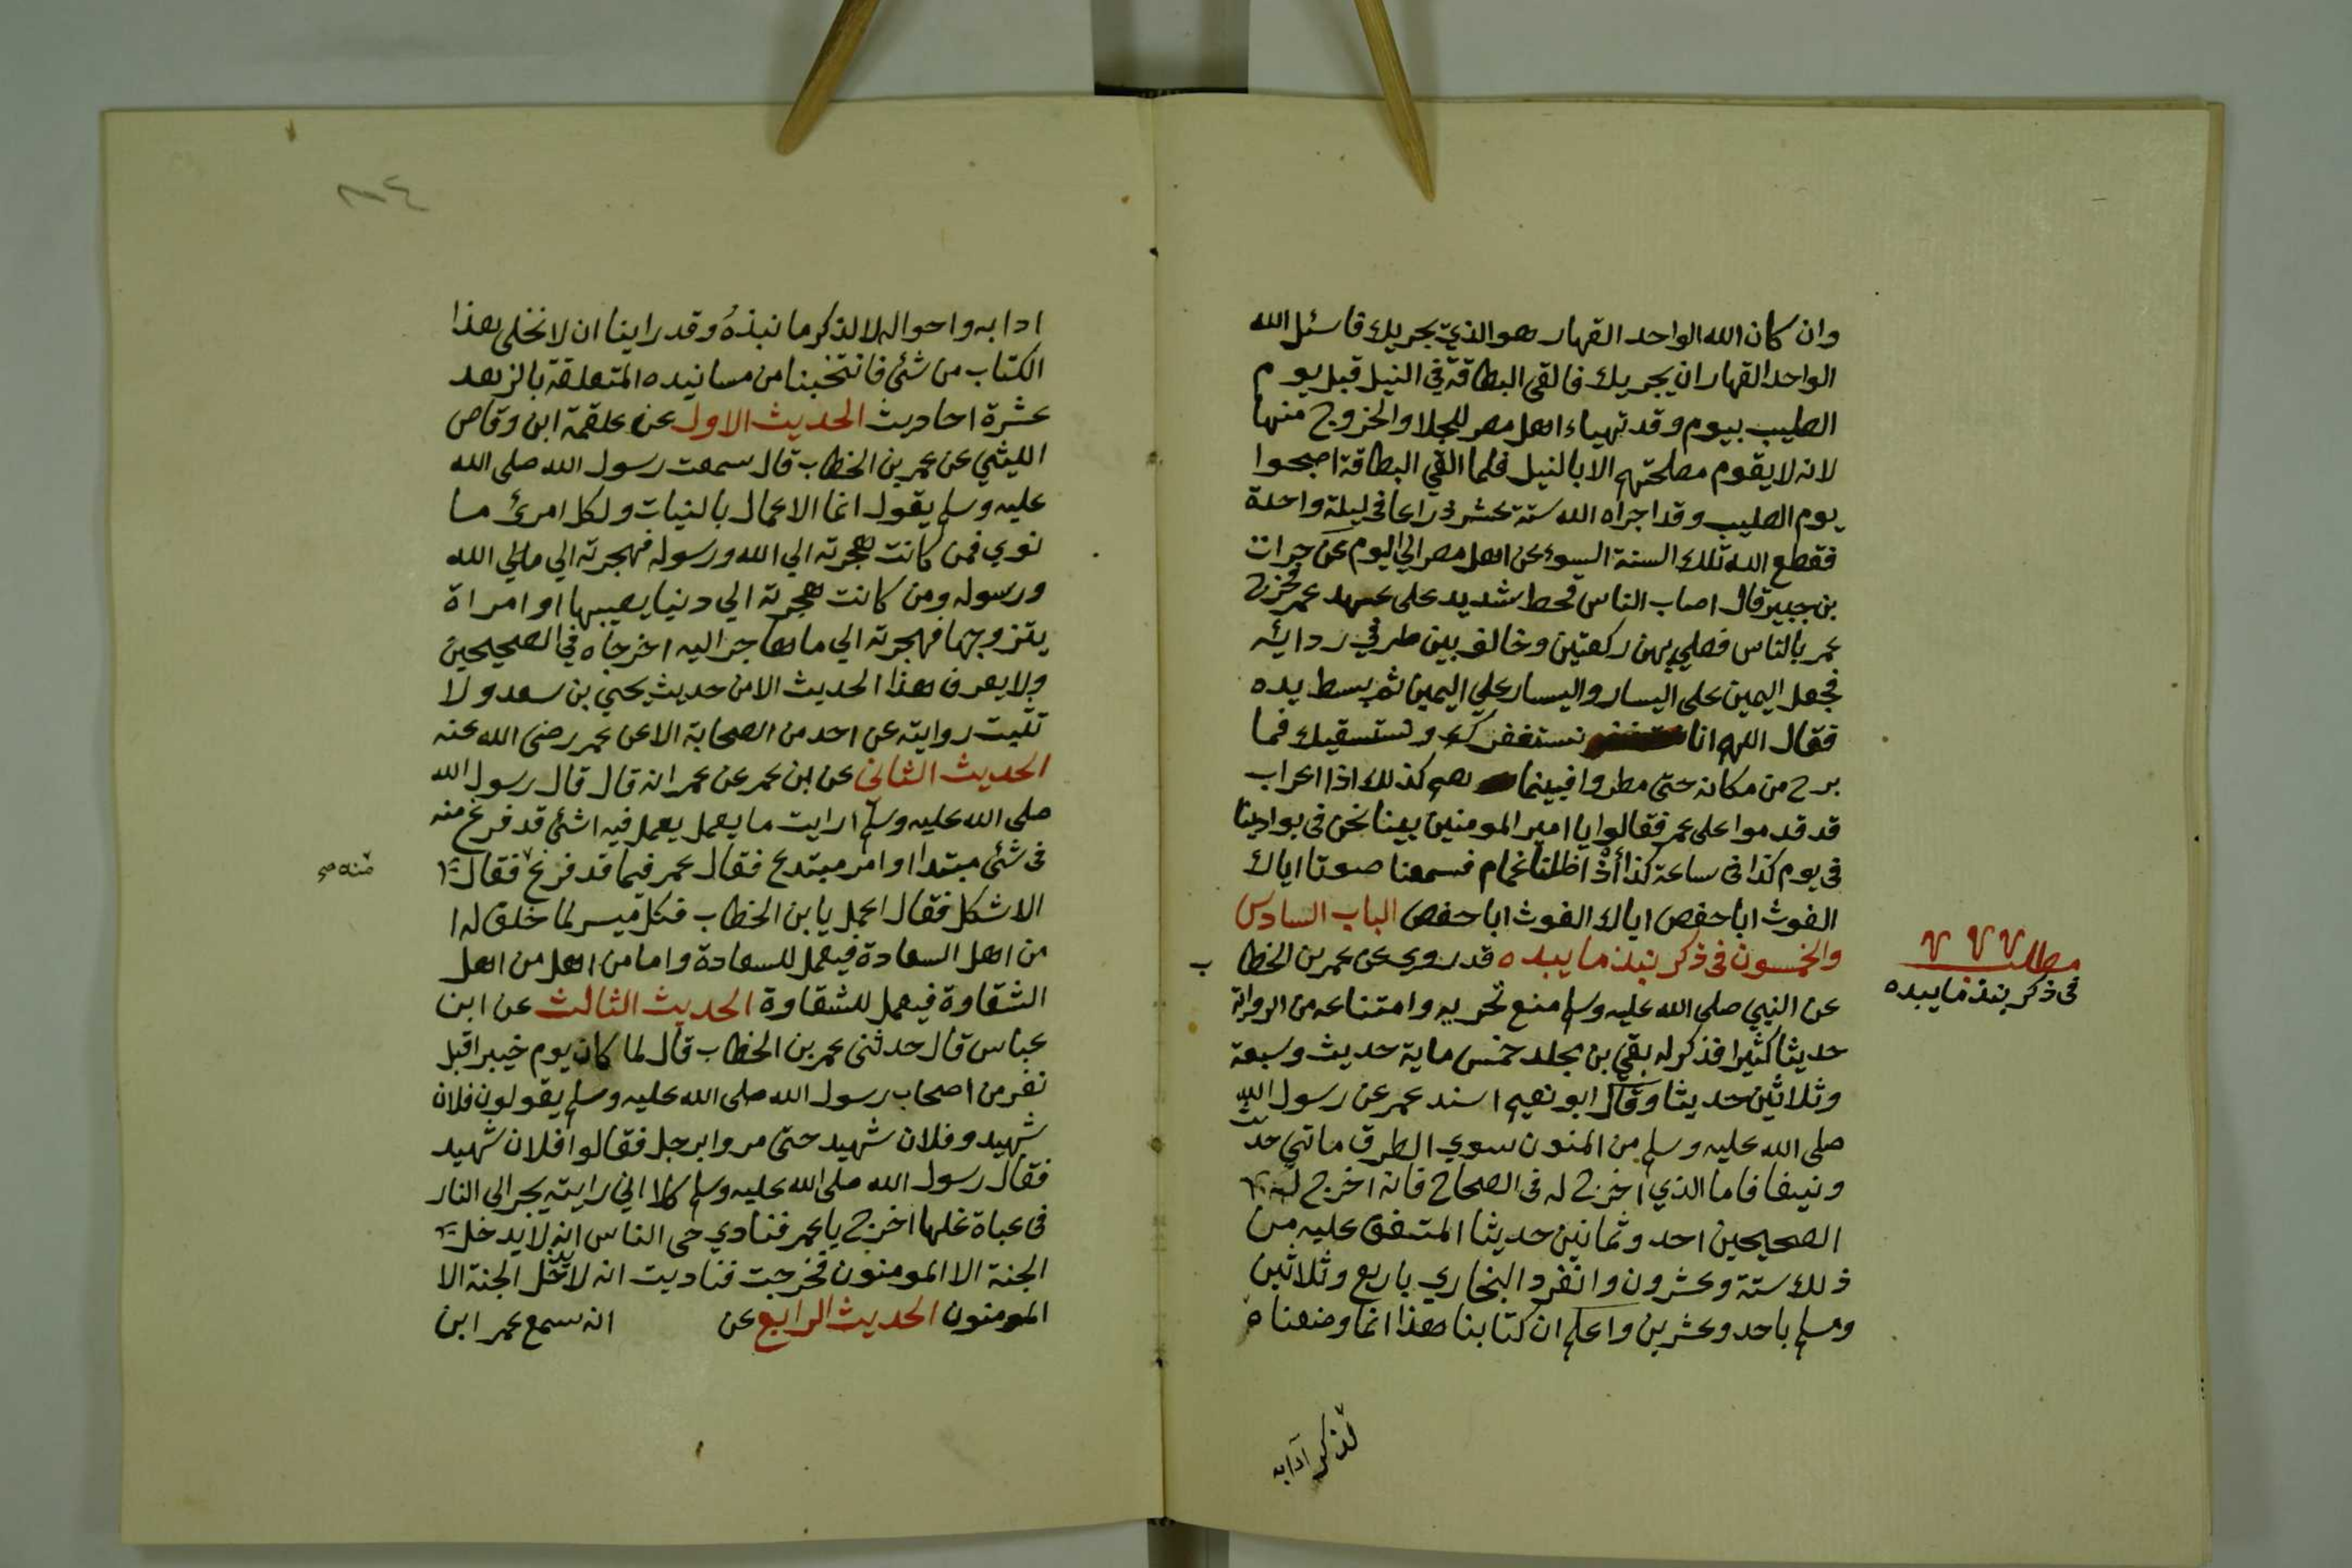 وان كان الله الواحد القهار هو الذي يجريك فاسئل الله
الواحد القهار ان يجريك فالقى البطاقة في النيل قبل يوم
الصليب بيوم وقد تهياء اهل مصر للجلا والخروج منها
لانه لا يقوم مصلحتهم الا بالنيل فلما القي البطاقة اصبحوا
يوم الصليب وقد اجراه الله ستة عشر ذراعا في ليلة واحدة
فقطع الله تلك السنة السوء عن اهل مصر الي اليوم عن خوات
بن جبير قال اصاب الناس قحط شديد على عهد عمر فخرج
عمر بالناس فصلي بهن ركعتين وخالف بين طرفي ردائه
فجعل اليمين على اليسار واليسار علي اليمين ثم بسط يده
فقال اللهم انا نستغفرك ونستسقيك فما
برح من مكانه حتى مطروا فبينما هم كذلك اذا اعراب
قد قدموا على عمر فقالوا يا امير المومنين بينا نحن في بوادينا
في يوم كذا في ساعة كذا أذ اظلنا غمام فسمعنا صوتا اياك
الغوث ابا حفص اياك الغوث ابا حفص الباب السادس
والخمسون في ذكر نبذ مما يبده قد روي عن عمر بن الخطاب
مطلب
في ذكر نبذ مما يبده
عن النبي صلى الله عليه وسلم منع تحريه وامتناعه من الرواية
حديثا كثيرا فذكر له بقي بن مجلد خمس ماية حديث وسبعة
وثلاثين حديثا وقال ابو نعيم اسند عمر عن رسول الله
صلى الله عليه وسلم من المتون سوي الطرق ماتي حديث
ونيفا فاما الذي اخرج له في الصحاح فانه اخرج له في
الصحيحين احد وثمانين حديثا المتفق عليه من
ذلك ستة وعشرون وانفرد البخاري باربع وثلاثين
ومسلم باحد وعشرين واعلم ان كتابنا هذا انما وضعناه
لذكر آدابه
ادابه واحواله لا لذكر ما نبذهُ وقد راينا ان لا نخلى هذا
الكتاب من شئ فانتخبنا من مسانيده المتعلقة بالزهد
عشرة احاديث الحديث الاول عن علقمة ابن وقاص
الليثي عن عمر بن الخطاب قال سمعت رسول الله صلى الله
عليه وسلم يقول انما الاعمال بالنيات ولكل امرئ ما
نوي فمن كانت هجرته الي الله ورسوله فهجرته الي الله
ورسوله ومن كانت هجرته الي دنيا يصيبها او امراة
يتزوجها فهجرته الي ما هاجر اليه اخرجاه في الصحيحين
ولا يعرف هذا الحديث الا من حديث يحيى بن سعد ولا
تثبت روايته عن احد من الصحابة الا عن عمر رضى الله عنه
الحديث الثانى عن ابن عمر عن عمر انه قال قال رسول الله
صلى الله عليه وسلم ارايت ما يعمل يعمل فيه اشئ قد فرغ منه
في شئ مبتدا او امر مبتدع فقال عمر فيما قد فرغ فقال
منه صح
الا شكل فقال اعمل يا بن الخطاب فكل ميسر لما خلق له
من اهل السعادة فيعمل للسعادة واما من اهل من اهل
الشقاوة فيعمل للشقاوة الحديث الثالث عن ابن
عباس قال حدثنى عمر بن الخطاب قال لما كان يوم خيبر اقبل
نفر من اصحاب رسول الله صلى الله عليه وسلم يقولون فلان
شهيد وفلان شهيد حتى مروا برجل فقالوا فلان شهيد
فقال رسول الله صلى الله عليه وسلم كلا اني رايته يجر الى النار
في عباة غلها اخرج يا عمر فنادي في الناس انه لا يدخل
الجنة الا المومنون فخرجت فناديت انه لا يدخل الجنة الا
المومنون الحديث الرابع عن انه سمع عمر ابن